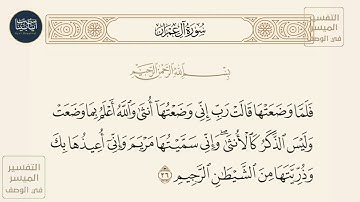 التفسير
الميسر
في الوصف
سُورَةُ آلِ عِمْرَانَ
بِسْمِ اللَّهِ الرَّحْمَٰنِ الرَّحِيمِ
فَلَمَّا وَضَعَتْهَا قَالَتْ رَبِّ إِنِّي وَضَعْتُهَآ أُنثَىٰ وَٱللَّهُ أَعْلَمُ بِمَا وَضَعَتْ
وَلَيْسَ ٱلذَّكَرُ كَٱلْأُنثَىٰ ۖ وَإِنِّي سَمَّيْتُهَا مَرْيَمَ وَإِنِّيٓ أُعِيذُهَا بِكَ
وَذُرِّيَّتَهَا مِنَ ٱلشَّيْطَٰنِ ٱلرَّجِيمِ ٣٦
التفسير
الميسر
في الوصف